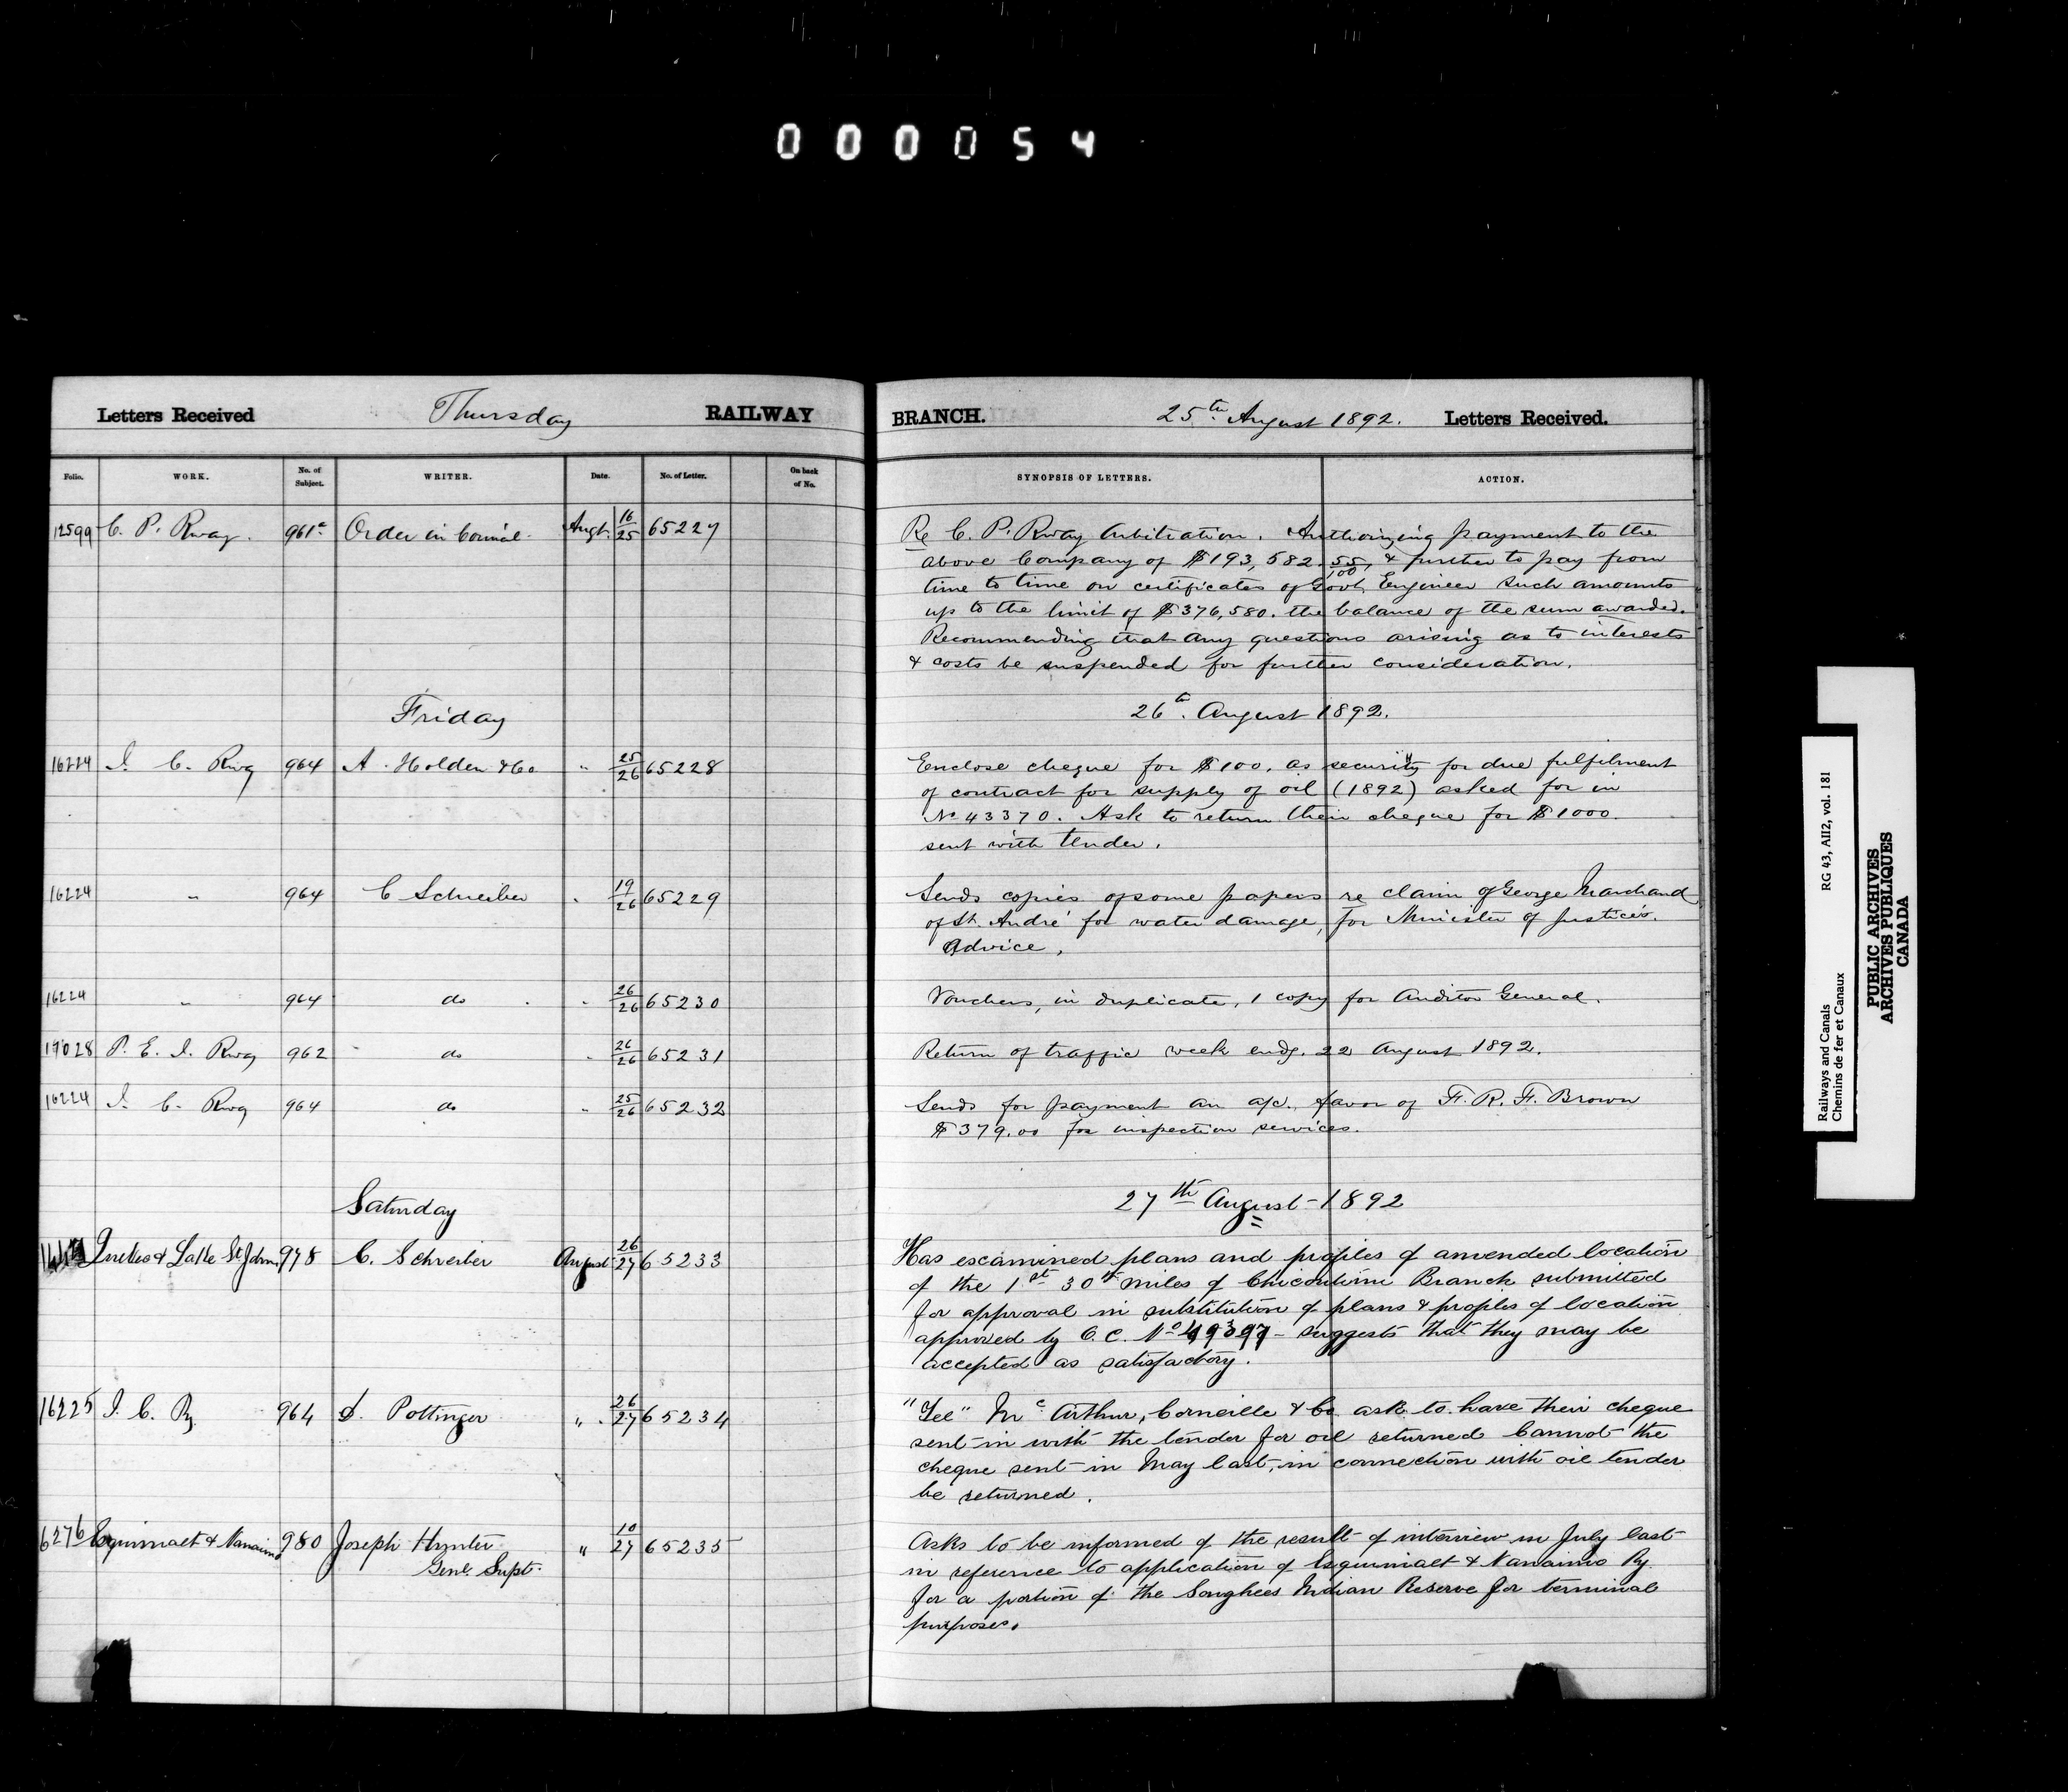 000054
Letters Received Thursday RAILWAY
BRANCH. 25th August 1892. Letters Received.
Folio. WORK. No. of Subject. WRITER. Date. No. of Letter. On back of No.
SYNOPSIS OF LETTERS. ACTION.
12599 C. P. Rway. 961a Order in Council Augt. 16/25 65227
Re C. P. Rway Arbitration. Authorizing payment to the
above Company of $193,582.55/100, & further to pay from
time to time on certificates of Govt. Engineer such amounts
up to the limit of $376,580. the balance of the sum awarded.
Recommending that any questions arising as to interests
& costs be suspended for further consideration.
Friday
26th. August 1892.
16224 I. C. Rwy 964 A. Holden & Co " 25/26 65228
Enclose cheque for $100. as security for due fulfilment
of contract for supply of oil (1892) asked for in
No 43370. Ask to return their cheque for $1000.
sent with tender.
16224 " 964 C Schreiber " 19/26 65229
Sends copies of some papers re claim of George Marchand
of St. André for water damage, for Minister of Justice's.
Advice.
16224 " 964 do " 26/26 65230
Vouchers, in duplicate, 1 copy for Auditor General.
19028 P. E. I. Rwy 962 " do " 26/26 65231
Return of traffic week endg. 22 August 1892.
16224 I. C. Rwy 964 do " 25/26 65232
Sends for payment an a/c. favor of F. R. F. Brown
$379.00 for inspection services.
Saturday
27th August - 1892
Quebec & Lake St John 978 C. Schreiber August 26/27 65233
Has examined plans and profiles of amended location
of the 1st 30th miles of Chicoutimi Branch submitted
for approval in substitution of plans & profiles of location
approved by O. C. No 49397 - suggests that they may be
accepted as satisfactory.
16225 I. C. Ry. 964 D. Pottinger " 26/27 65234
"Tel" McArthur, Corneille & Co ask to have their cheque
sent in with the tender for oil returned Cannot the
cheque sent in May last, in connection with oil tender
be returned.
6276 Esquimalt & Nanaimo 980 Joseph Hunter " 10/27 65235
Genl Supt.
Asks to be informed of the result of interview in July last
in reference to application of Esquimalt & Nanaimo Ry.
for a portion of the Songhees Indian Reserve for terminal
purposes.
Railways and Canals RG 43, AII2, vol. 181
Chemins de fer et Canaux
PUBLIC ARCHIVES
ARCHIVES PUBLIQUES
CANADA